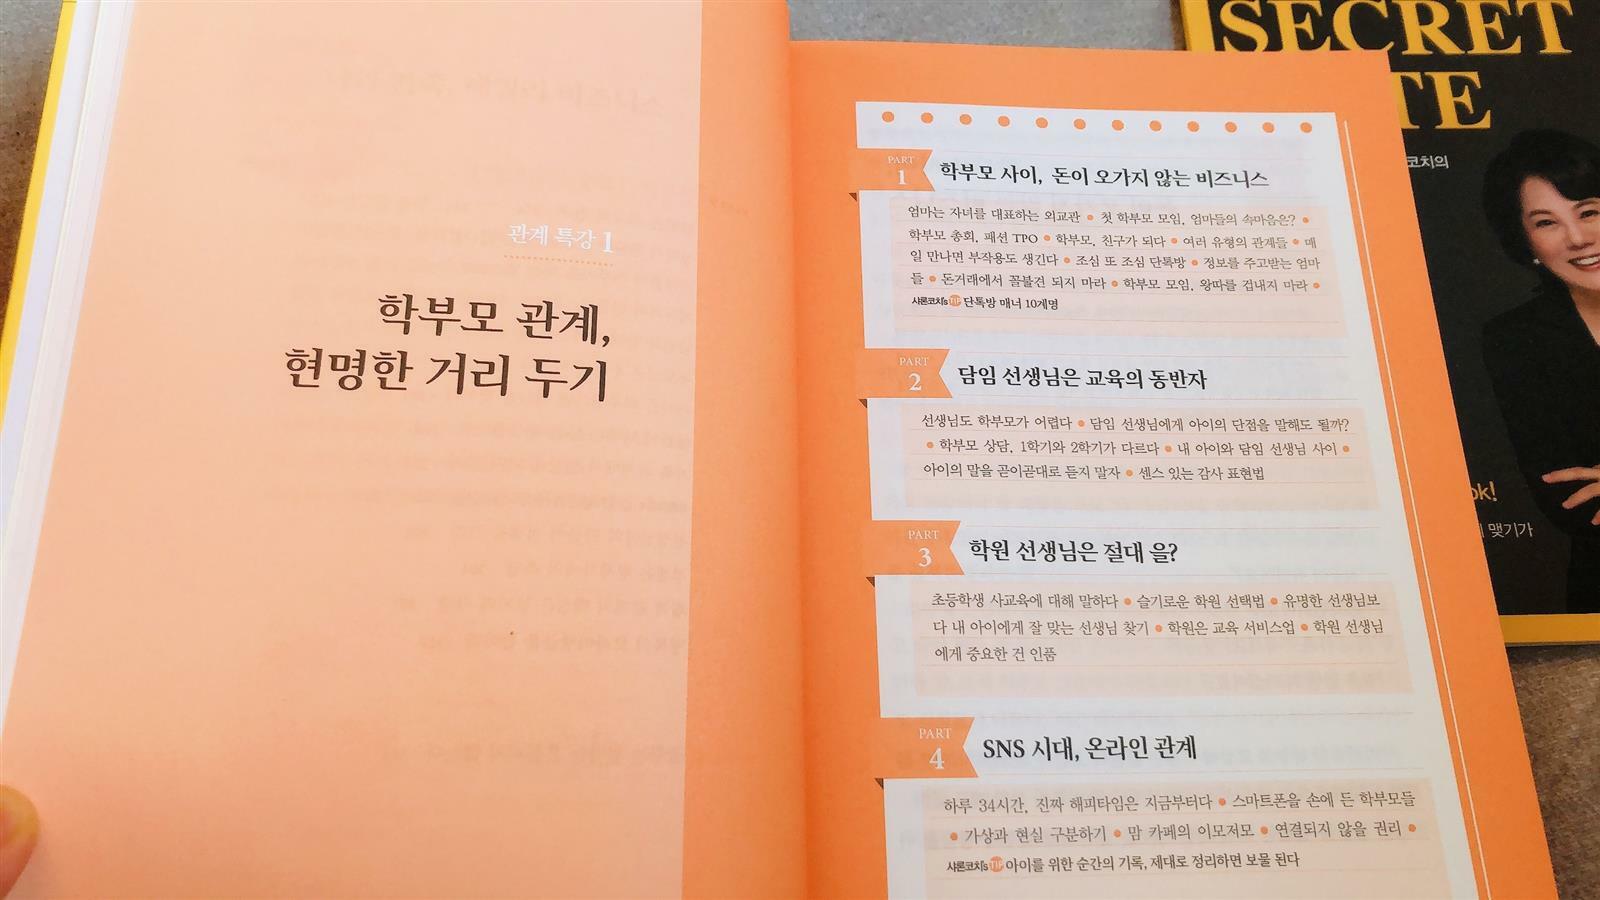 관계 특강 1
학부모 관계,
현명한 거리 두기
PART
1
학부모 사이, 돈이 오가지 않는 비즈니스
엄마는 자녀를 대표하는 외교관 • 첫 학부모 모임, 엄마들의 속마음은? •
학부모 총회, 패션 TPO • 학부모, 친구가 되다 • 여러 유형의 관계들 • 매
일 만나면 부작용도 생긴다 • 조심 또 조심 단톡방 • 정보를 주고받는 엄마
들 • 돈거래에서 꼴불견 되지 마라 • 학부모 모임, 왕따를 겁내지 마라 •
샤론코치's TIP 단톡방 매너 10계명
PART
2
담임 선생님은 교육의 동반자
선생님도 학부모가 어렵다 • 담임 선생님에게 아이의 단점을 말해도 될까?
• 학부모 상담, 1학기와 2학기가 다르다 • 내 아이와 담임 선생님 사이 •
아이의 말을 곧이곧대로 듣지 말자 • 센스 있는 감사 표현법
PART
3
학원 선생님은 절대 을?
초등학생 사교육에 대해 말하다 • 슬기로운 학원 선택법 • 유명한 선생님보
다 내 아이에게 잘 맞는 선생님 찾기 • 학원은 교육 서비스업 • 학원 선생님
에게 중요한 건 인품
PART
4
SNS 시대, 온라인 관계
하루 34시간, 진짜 해피타임은 지금부터다 • 스마트폰을 손에 든 학부모들
• 가상과 현실 구분하기 • 맘 카페의 이모저모 • 연결되지 않을 권리 •
샤론코치's TIP 아이를 위한 순간의 기록, 제대로 정리하면 보물 된다
SECRET
TE
코치의
ok!
맺기가